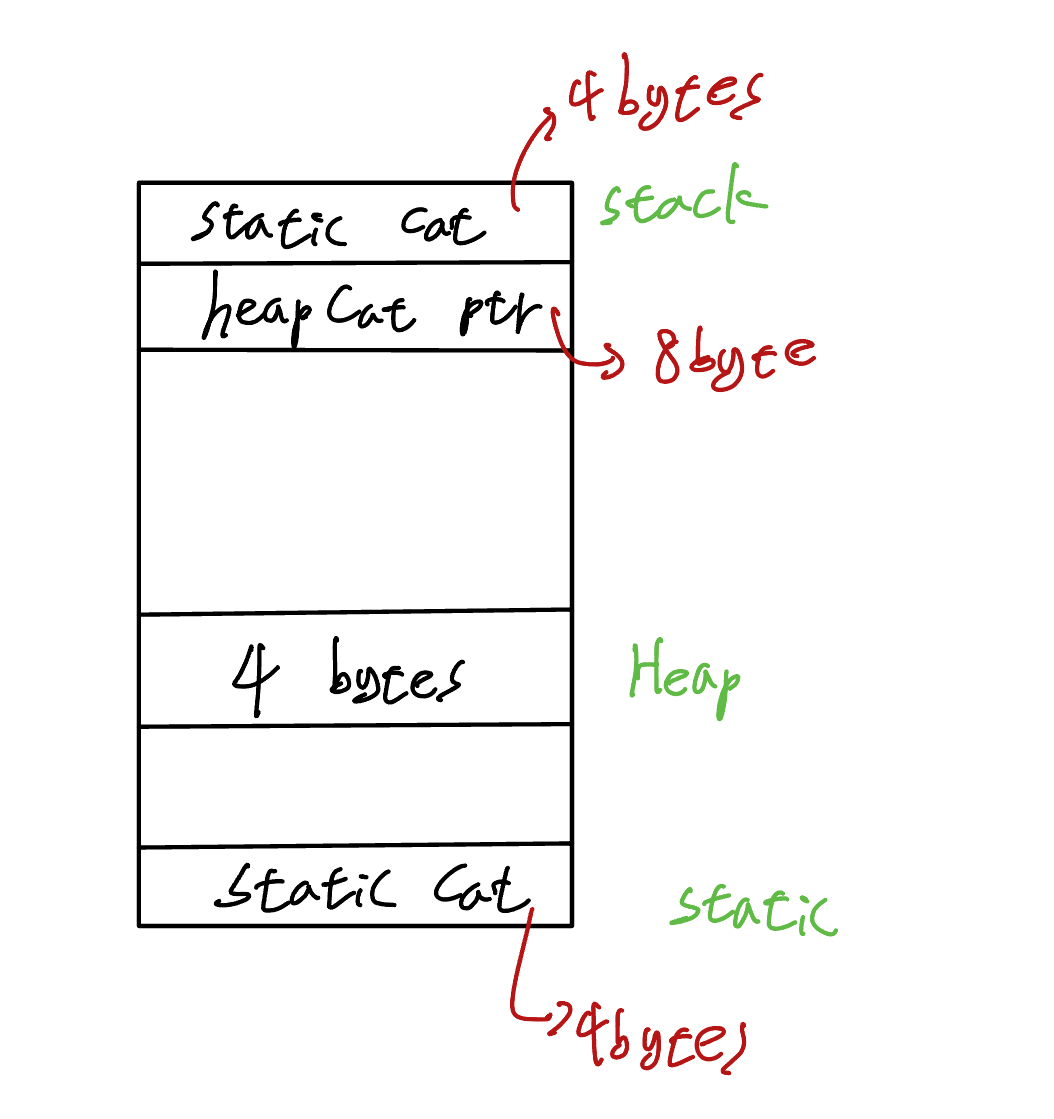 4 bytes
static cat
stack
heapCat ptr
8 byte
4 bytes
Heap
static Cat
static
4 bytes